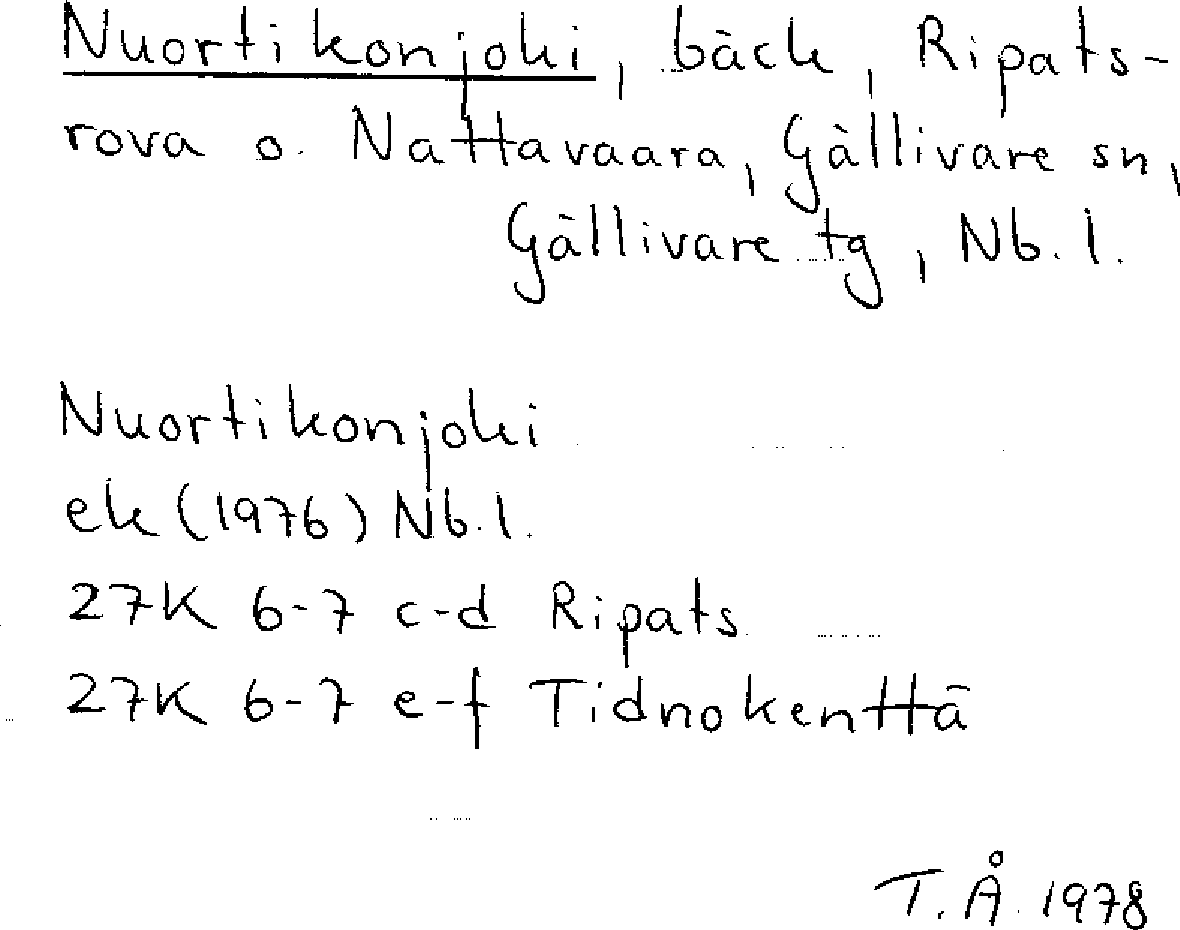 Nuortikonjoki, bäck, Ripats-
rova o. Nattavaara, Gällivare sn,
Gällivare tg, Nb. l.
Nuortikonjoki
ek (1976) Nb. l.
27K 6-7 c-d Ripats
27K 6-7 e-f Tidnokenttä
T. Å. 1978